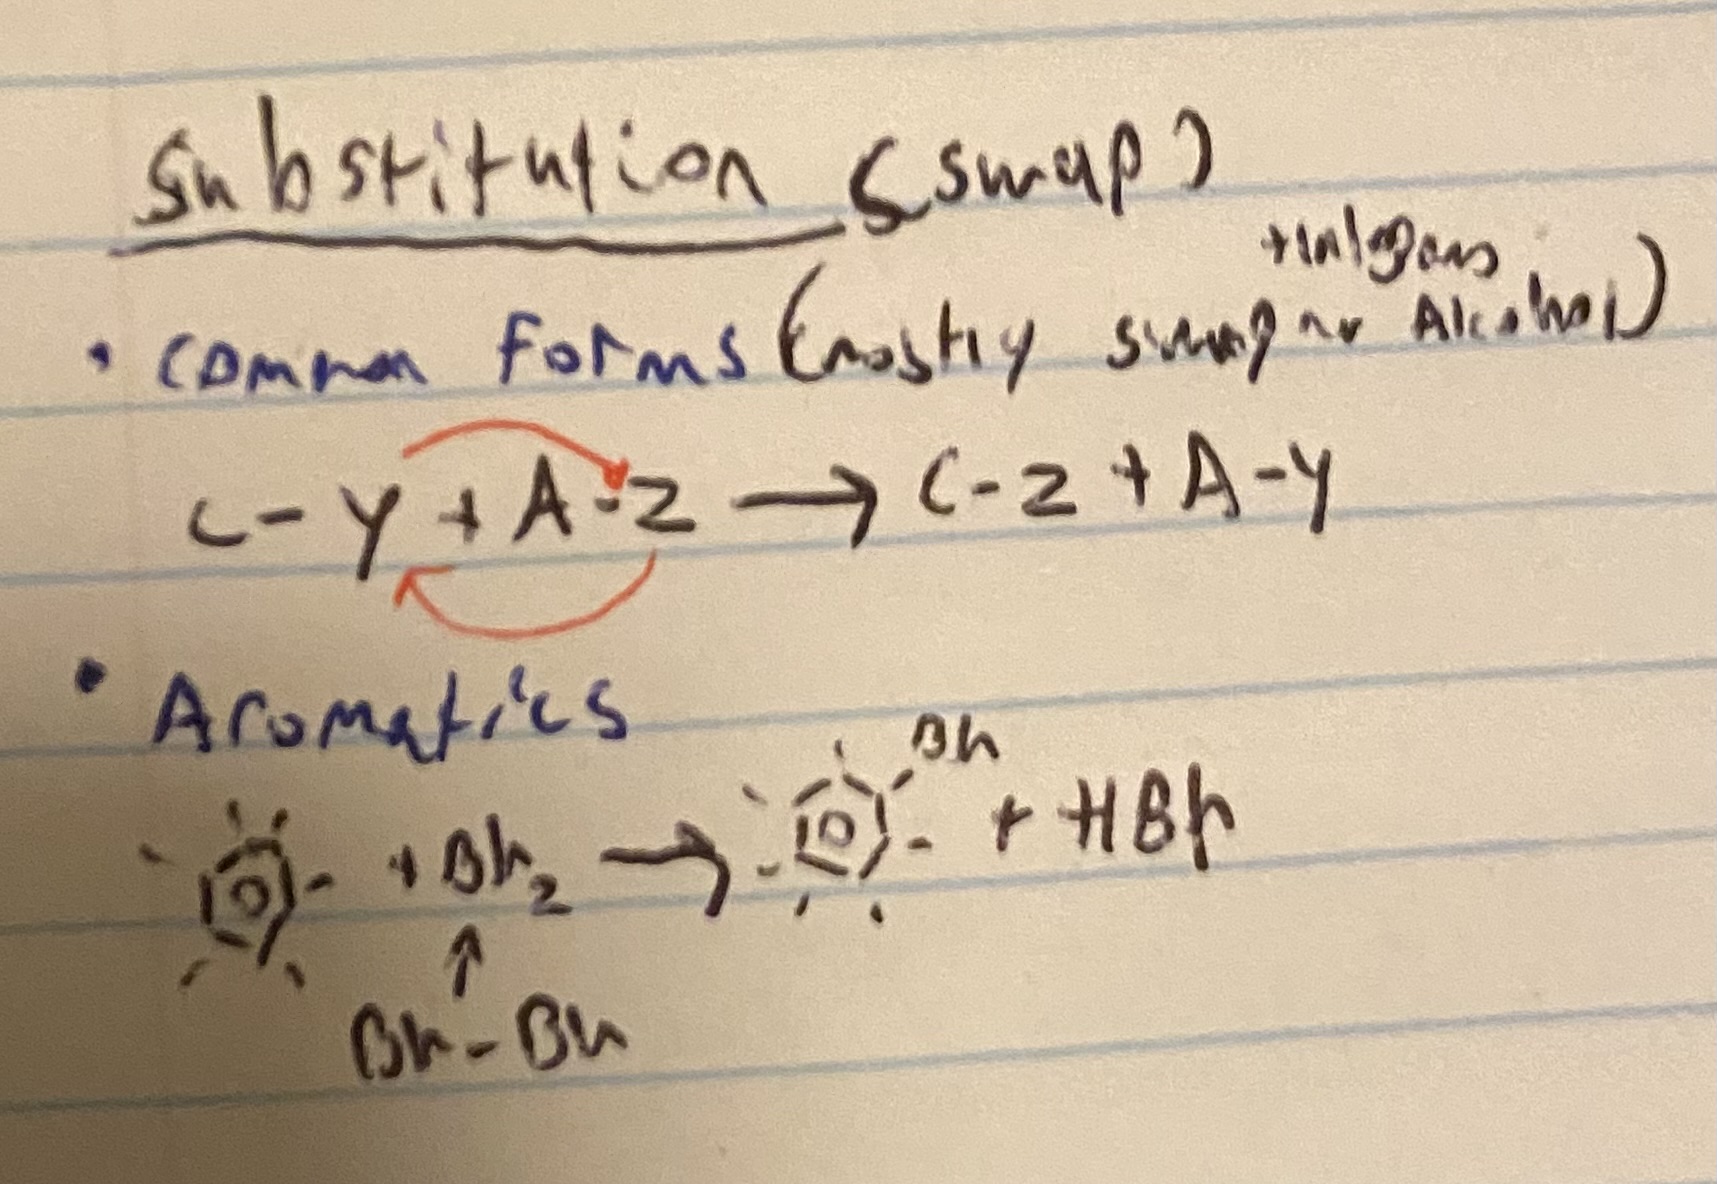 Substitution (swap)
+ halogens
• Common Forms (mostly swap or Alcohol)
C - Y + A - Z → C - Z + A - Y
• Aromatics
Br
+ Br₂ → + HBr
↑
Br - Br